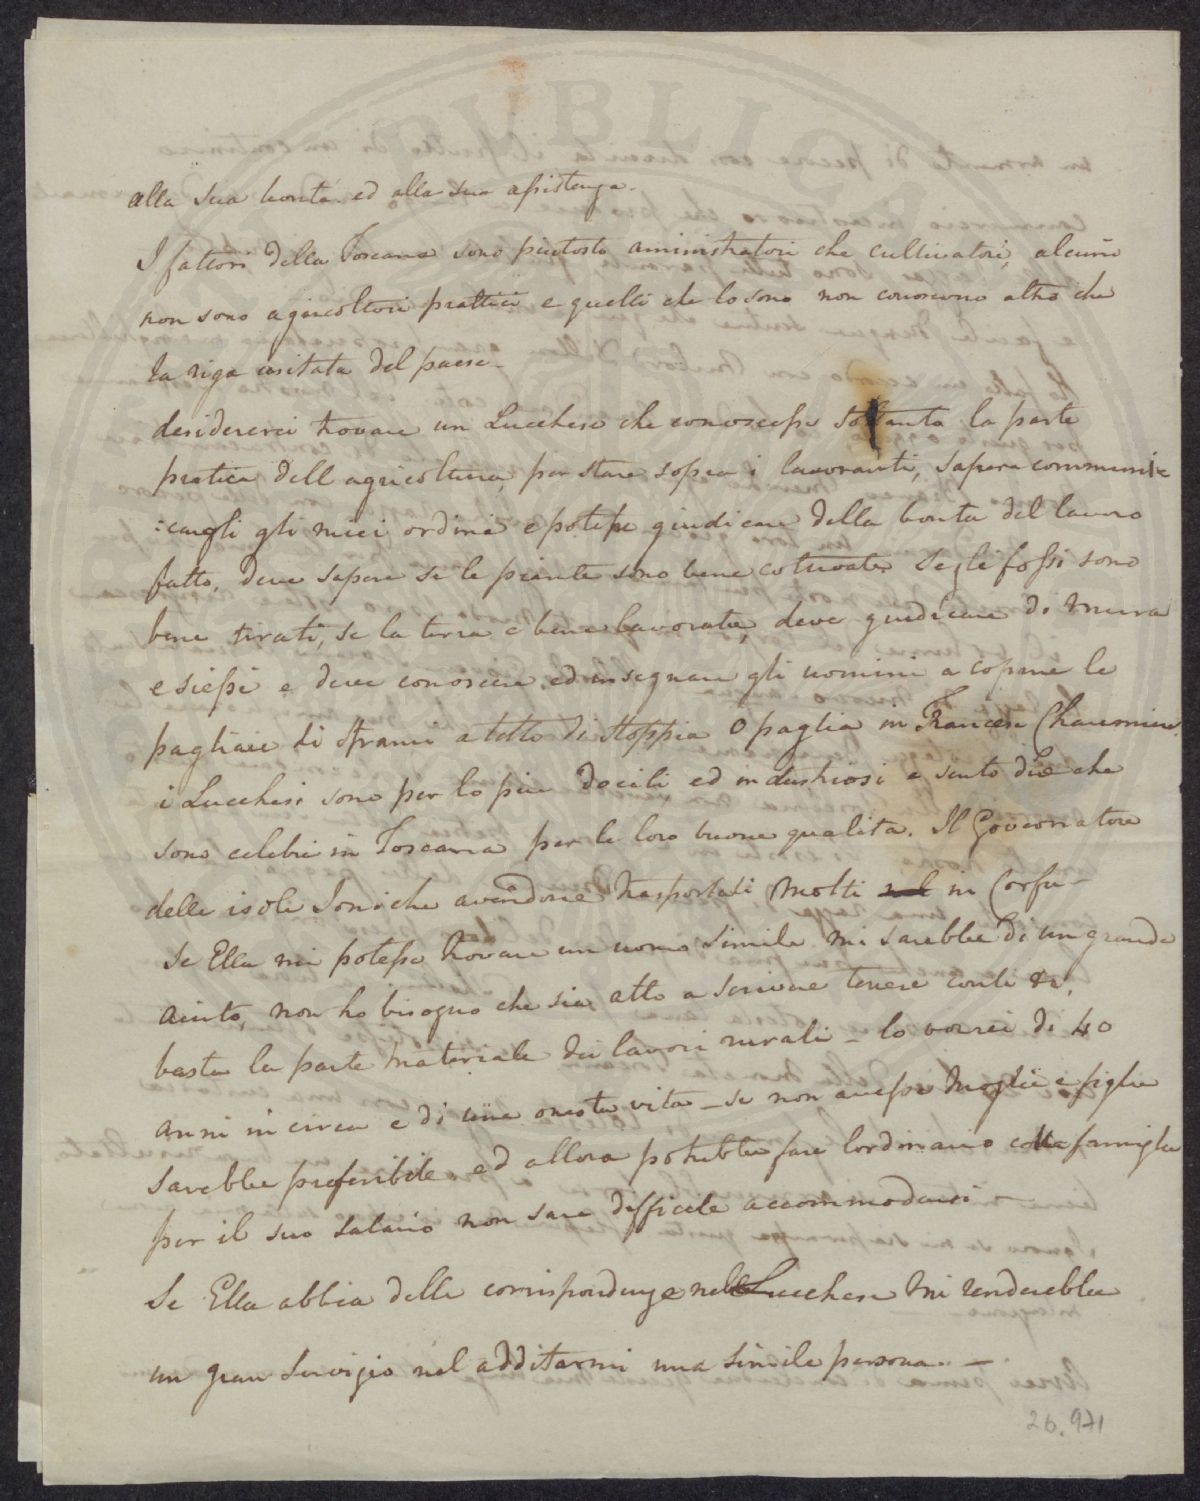 alla sua bontà ed alla sua assistenza.
I fattori della Toscana sono piutosto aministratori che cultivatori, alcuni
non sono agricoltori prattici e quelli che lo sono non conoscono altro che
la riga usitata del paese.
desidererei trovare un Lucchese che conoscesse soltanto la parte
pratica dell agricoltura, per stare sopra i lavoranti, sapere communi=
=cargli gli miei ordini e potesse giudicare della bontà del lavoro
fatto, deve sapere se le piante sono bene coltivate se gli fossi sono
bene tirati, se la terra è bene lavorata, deve giudicare di mura
e siepi e deve conoscere ed insegnare gli uomini a coprire le
pagliaie di strami a tetto di stoppia o paglia in Francese Chaumière.
i Lucchesi sono per lo piu docili ed industriosi e sento dire che
sono celebri in Toscana per le loro buone qualita. Il Governatore
delle isole Ioniche avendone trasportati molti in Corfu –
Se Ella mi potesse trovare un uomo simile mi sarebbe di un grande
aiuto, non ho bisogno che sia atto a scrivere tenere conti &c.
basta la parte materiale dei lavori rurali – lo vorrei di 40
anni in circa e di una onesta vita – se non avesse moglie e figlie
sarebbe preferibile ed allora potrebbe fare lordinario colla famiglia
per il suo salario non sara difficile accommodarci –
Se Ella abbia delle corrispondenze nel Lucchese mi renderebbe
un gran servigio nel additarmi una simile persona. –
26.971